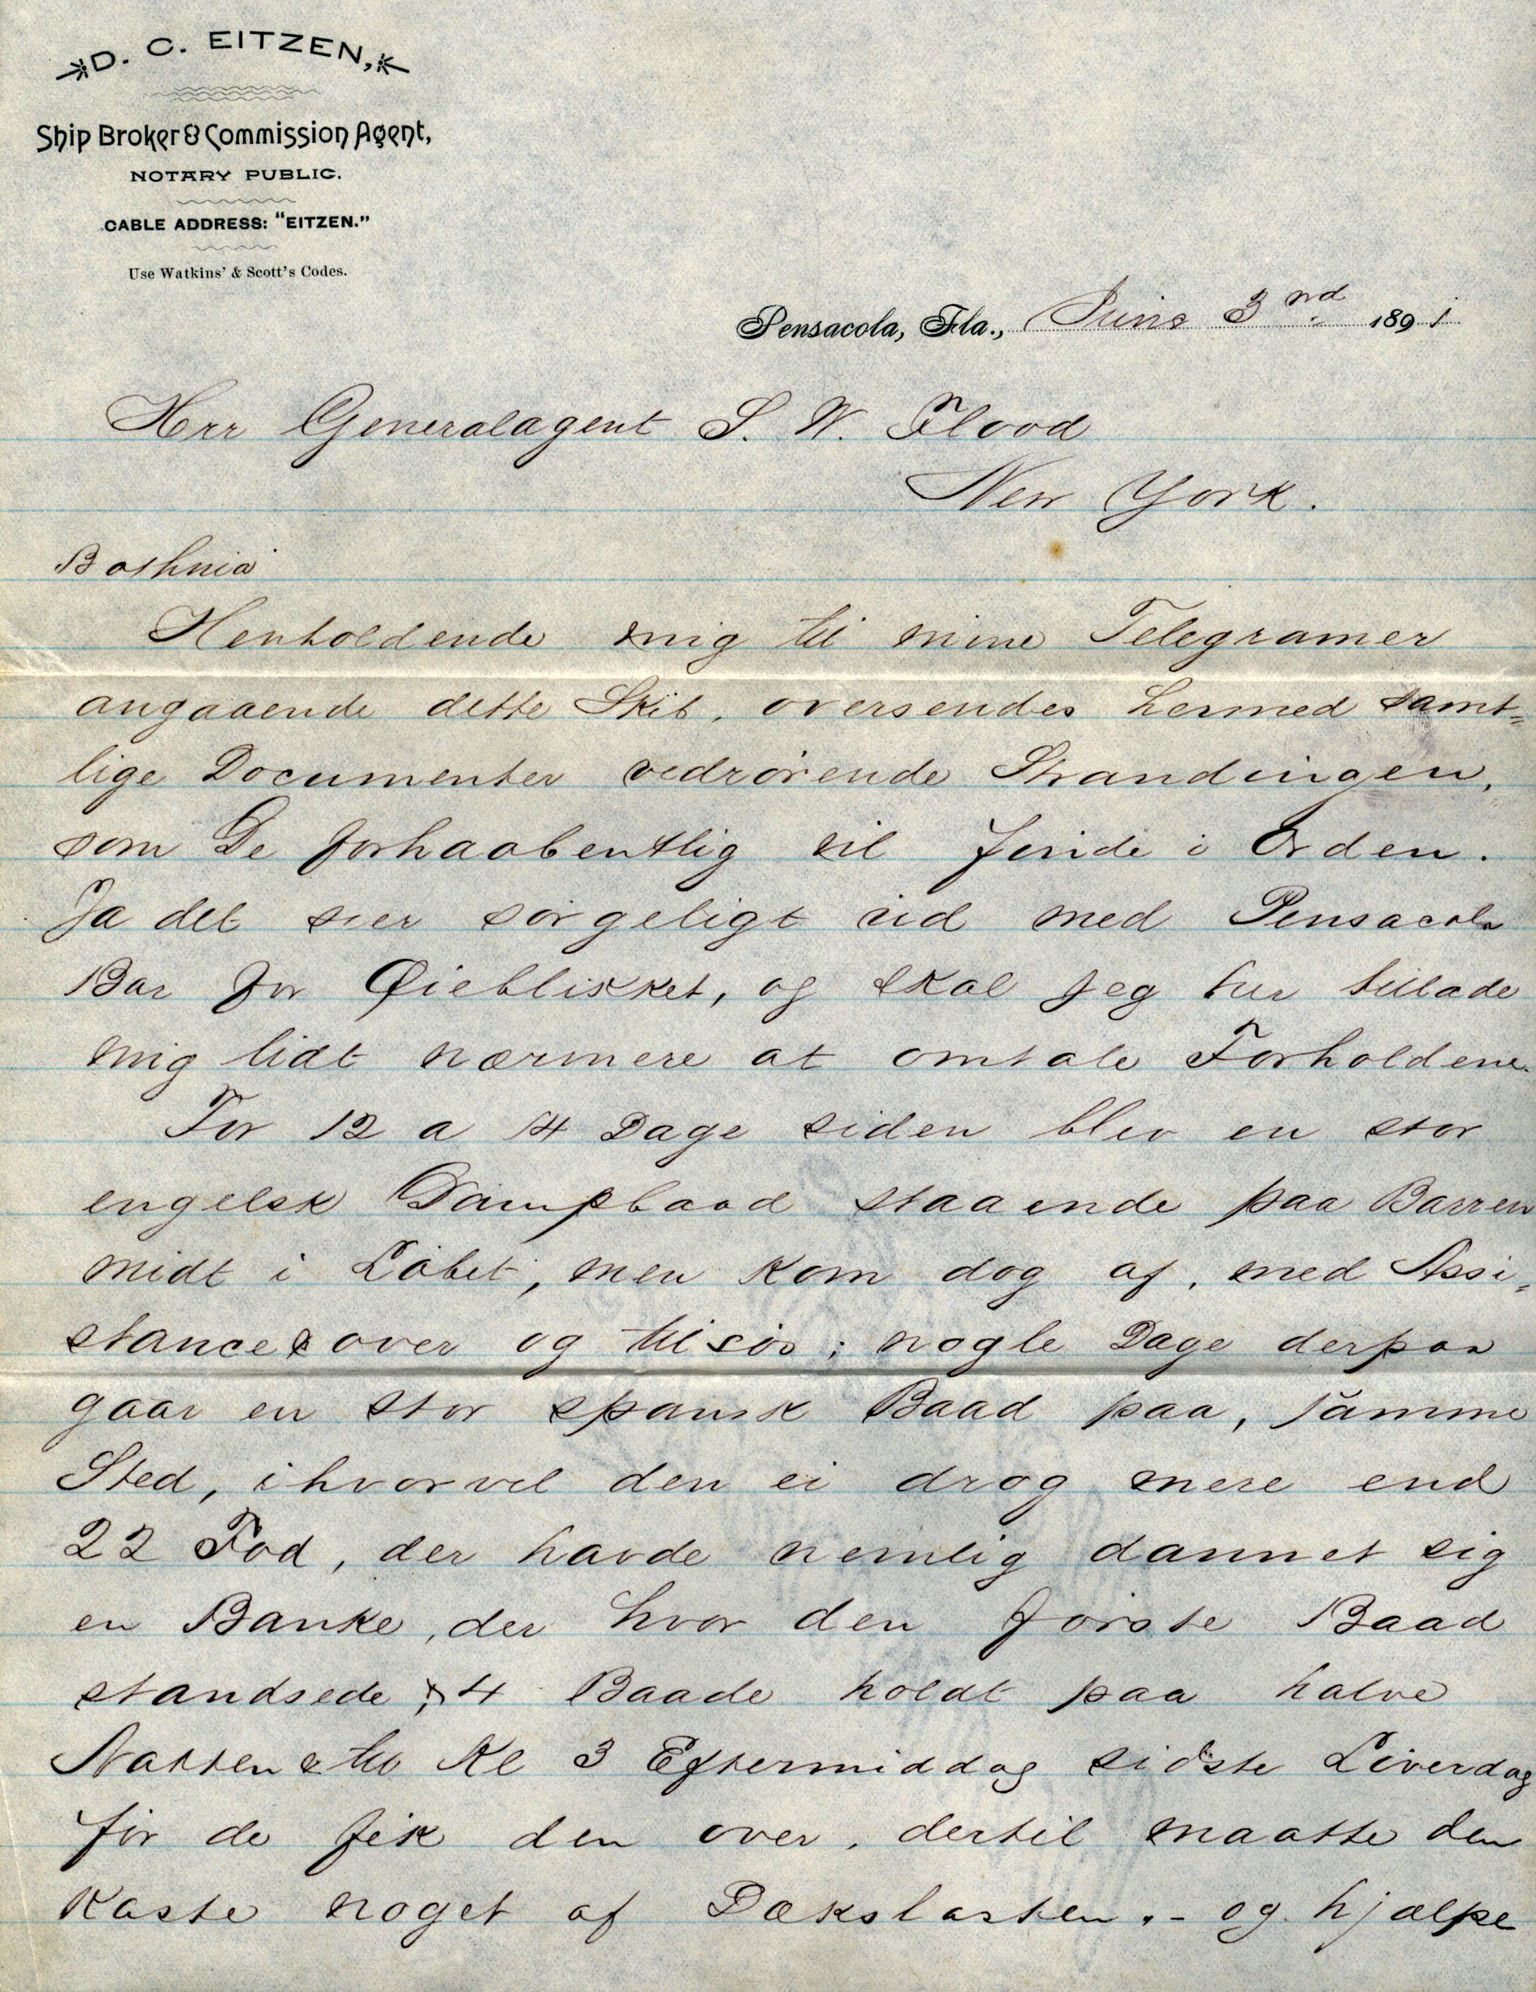 D. C. EITZEN,
Ship Broker & Commission Agent,
NOTARY PUBLIC.
CABLE ADDRESS: "EITZEN."
Use Watkins' & Scott's Codes.
Pensacola, Fla., June 3nd 1891
Herr Generalagent S. W. Flood
New York.
Bothnia
Henholdende mig til mine Telegramer
angaaende dette Skib, oversendes hermed samt=
lige Documenter vedrørende Strandingen,
som De forhaabentlig vil finde i Orden.
Ja det seer sørgeligt ud med Pensacola
Bar for Øieblikket, og skal jeg her tillade
mig lidt nærmere at omtale Forholdene.
For 12 a 14 Dage siden blev en stor
engelsk Dampbaad staaende paa Barren
midt i Løbet, men kom dog af, med Assi=
stance over og tilsøs; nogle Dage derpaa
gaar en stor spansk Baad paa, samme
Sted, ihvorvel den ei drog mere end
22 Fod, der havde nemlig dannet sig
en Banke, der hvor den første Baad
standsede, 4 Baade holdt paa halve
Natten & til Kl 3 Eftermiddag sidste Løverdag
før de fik den over, dertil maatte den
kaste noget af Dækslasten. - og hjælpe